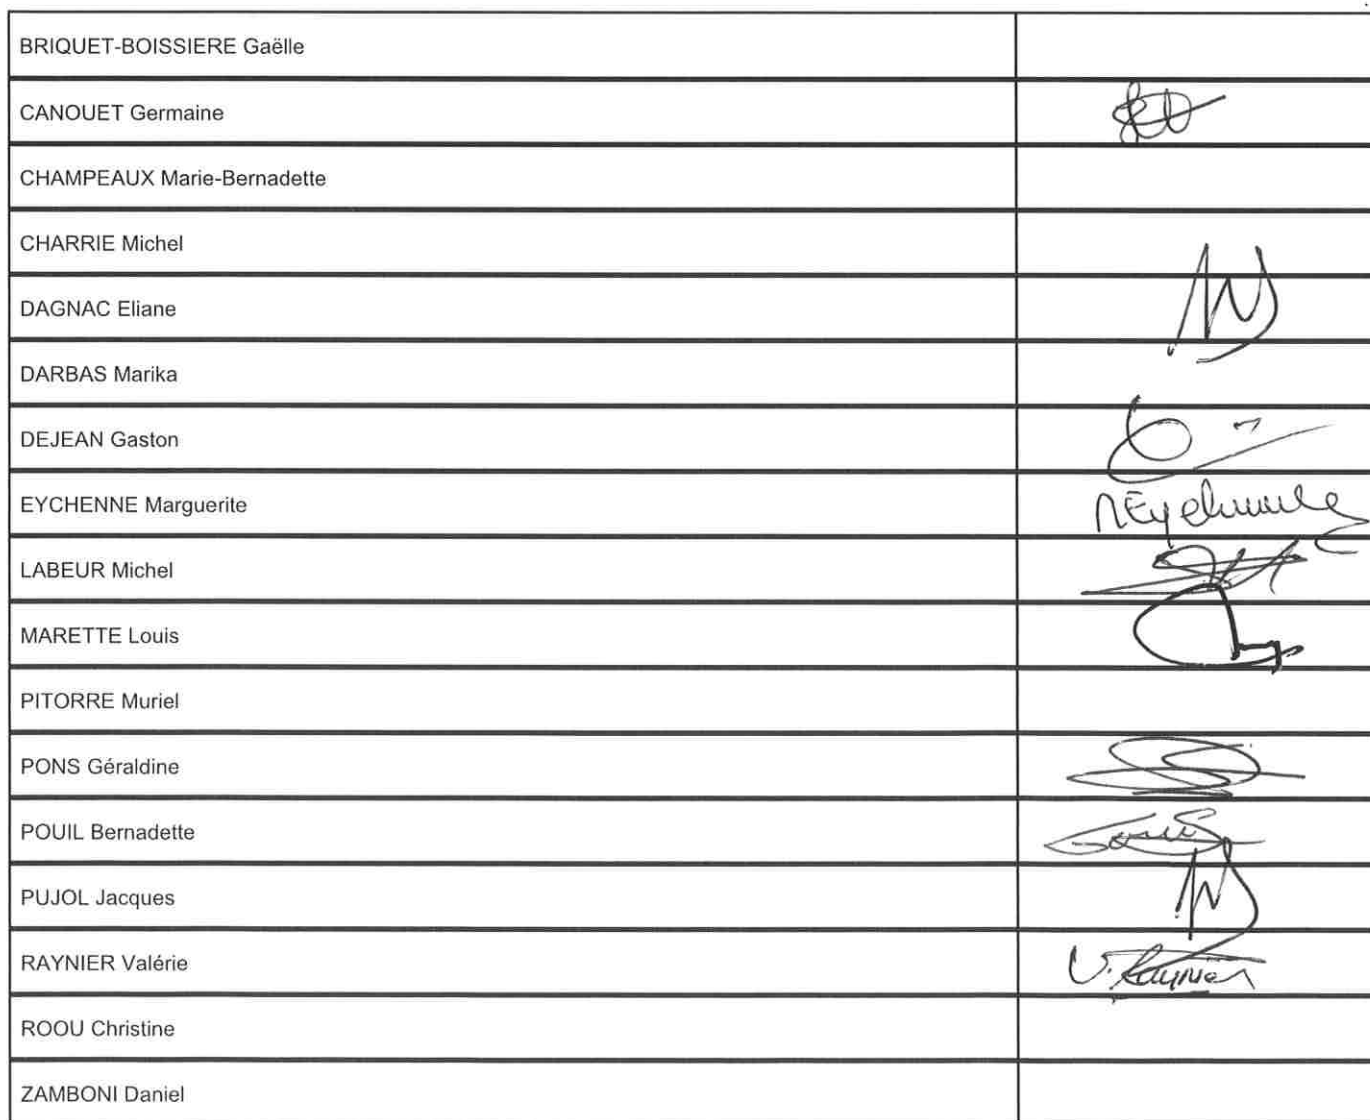 BRIQUET-BOISSIERE Gaëlle
CANOUET Germaine
CHAMPEAUX Marie-Bernadette
CHARRIE Michel
DAGNAC Eliane
DARBAS Marika
DEJEAN Gaston
EYCHENNE Marguerite
LABEUR Michel
MARETTE Louis
PITORRE Muriel
PONS Géraldine
POUIL Bernadette
PUJOL Jacques
RAYNIER Valérie V. Raynier
ROOU Christine
ZAMBONI Daniel